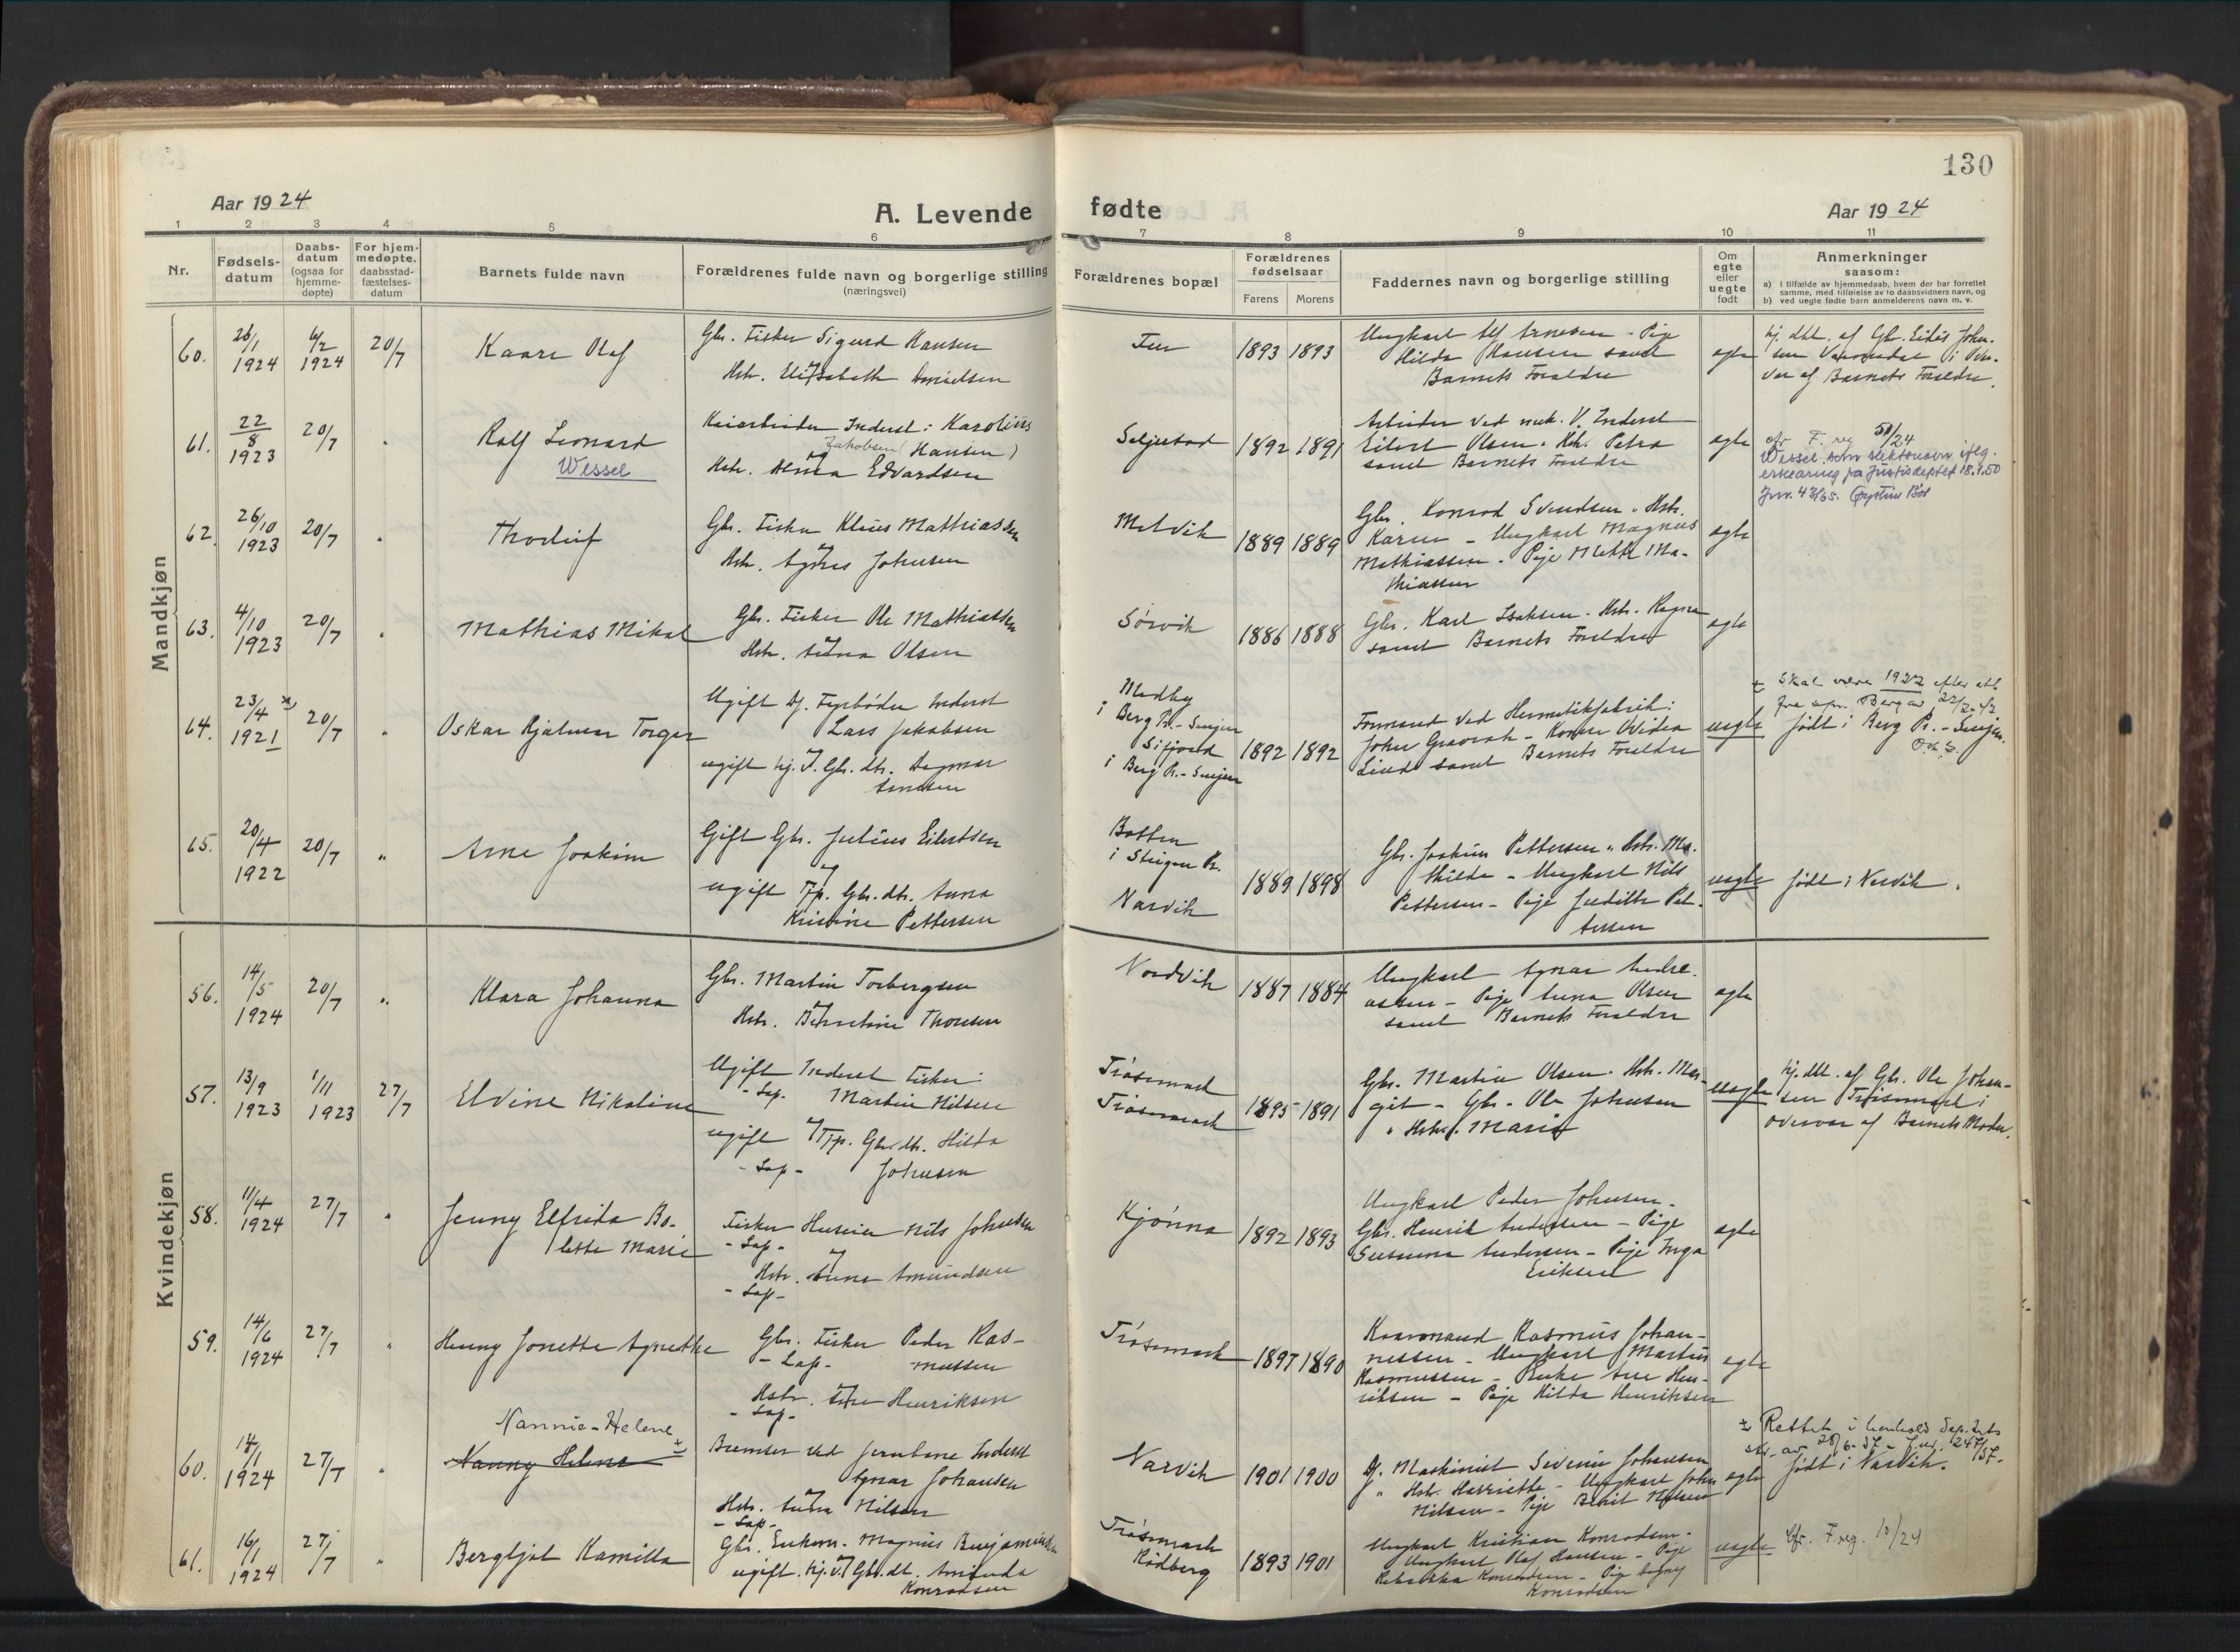 130
Aar 19 24
A. Levende
fødte
Aar 19 24
1 2 3 4 5 6 7 8 9 10 11
Nr.
Fødsels-
datum
Daabs-
datum
(ogsaa for
hjemme-
døpte)
For hjem-
medøpte,
daabsstad-
fæstelses-
datum
Barnets fulde navn
Forældrenes fulde navn og borgerlige stilling
(næringsvei)
Forældrenes bopæl
Forældrenes
fødselsaar
Farens Morens
Faddernes navn og borgerlige stilling
Om
egte
eller
uegte
født
Anmerkninger
saasom:
a) i tilfælde av hjemmedaab, hvem der har forrettet
samme, med tilføielse av to daabsvidners navn, og
b) ved uegte fødte barn anmelderens navn m. v.
Mandkjøn
60.
26/1
1924
6/2
1924
20/7
Kaare Olaf
Gbr. Fisker Sigurd Hansen
Hstr. Elisabeth Danielsen
1893 1893
Ungkarl Alf Arnesen - Pige
Hilda Hansen samt
Barnets Forældre
egte
hj. dbt. af Gbr. Eidis Johan-
sen
ver af Barnets Forældre.
61.
22
8
1923
20/7
"
Ralf Leonard
Wessel
Kaiarbeider Inderst: Karolius
Jakobsen (Hansen)
og
Hstr. Edvardsen
Seljestad
1892 1891
Arbeider ved mek. V. Inderst
Eilert Olsen. Hstr. Petra
samt Barnets Forældre
egte
cfr F. reg 50/24
Wessel som slektsnavn iflg.
erklæring fra Justisdeptet 18.1.50
Jnr. 43/65.
62.
26/10
1923
20/7
"
Thorleif
Gbr. Fisker Klaus Mathiassen
og
Hstr. Agnes Johnsen
Melvik
1889 1889
Gbr. Konrad Svendsen " Hstr.
Karen - Ungkarl Magnus
Mathiassen - Pige Mette Ma-
thiassen
egte
63.
4/10
1923
20/7
"
Mathias Mikal
Gbr. Fisker Ole Mathiassen
og
Hstr. Anna Olsen
Sørvik
1886 1888
Gbr. Karl Isaksen - Hstr. Ragna
samt Barnets Forældre
egte
64.
23/4 x)
1921
20/7
"
Oskar Hjalmar Torger
Ugift Dj. Fyrbøder Inderst
Lars Jakobsen
og
ugift hj. v. Gbr. dtr. Dagmar
Medby
i Berg Pr. - Senjen
Sifjord
i Berg Pr. - Senjen
1892 1892
Formand ved Hermetikfabrik:
John Gravrok - Konru Ovidia
Lind samt Barnets Forældre
uegte
x Skal være 1922 efter att.
fra spr. Berg av 22/2-42
født i Berg Pr. - Senjen.
65.
20/4
1922
20/7
"
Arne Joakim
Gift Gbr. Julius Eilertsen
og
ugift Tjp. Gbr. dtr. Anna
Kristine Pettersen
Botten
i Steigen Pr.
Narvik
1889 1898
Gbr. Joakim Pettersen " Hstr. Ma-
thilde - Ungkarl Nils
Pettersen - Pige Judith Pet-
tersen
uegte
født i Narvik.
Kvindekjøn
56.
14/5
1924
20/7
"
Klara Johanna
Gbr. Martin Torbergsen
og
Hstr. Berntine Thoresen
Nordvik
1887 1884
Ungkarl Agnar Andre-
assen - Pige Anna Olsen
samt Barnets Forældre
egte
57.
13/9
1923
1/11
1923
27/7
Elvine Nikoline
Ugift Inderst Fisker:
- Lap. Martin Nilsen
og
ugift Tjp. Gbr. dtr. Hilda
- Lap - Johnsen
Trøsemark
Trøsemark
1895 1891
Gbr. Martin Olsen. Hstr. Mar-
git - Gbr. Ole Johnsen
" Hstr. Marie
uegte
hj. dbt. af Gbr. Ole Johan-
sen Trøsemark i
overvær af Barnets Moder.
58.
11/4
1924
27/7
"
Jenny Elfrida Bo-
lette Marie
Fisker Huseier Nils Johnsen
- Lap -
og
Hstr. Anna Amundsen
- Lap -
Kjønna
1892 1893
Ungkarl Peder Johnsen -
Gbr. Henrik Andersen - Pige
Susanna Andersen - Pige Inga
Eriksen
egte
59.
14/6
1924
27/7
"
Henny Jonette Agnethe
Gbr. Fisker Peder Ras-
- Lap - mussen
og
Hstr. Ane Henriksen
- Lap -
Trøsemark
1897 1890
Kaarmand Rasmus Johan-
nessen - Ungkarl Martin
Rasmussen - Enke Ane Hen-
riksen - Pige Hilda Henriksen
egte
60.
14/1
1924
27/7
"
Nannie-Helene x
Nanny Helene
Bremser ved Jernbane Inderst
Agnar Johansen
og
Hstr. Anna Nilsen
- Lap -
Narvik
1901 1900
Dj. Maskinist Severin Johansen
" Hstr. Harriette - Ungkarl John
Nilsen - Pige Berit Nilsen
egte
x Rettet i henhold Dep.tets
skr. av 28/6-37 - J.nr. 247/37.
født i Narvik.
61.
16/1
1924
27/7
"
Bergljot Kamilla
Gbr. Enkem. Magnus Benjaminsen
og
ugift. hj. v. Gbr. dt. Aminda
Konradsen
Trøsemark
Rødberg
1893 1901
Ungkarl Kristian Konradsen -
Ungkarl Olaf Hansen - Pige
Rebekka Konradsen - Pige Dagny
Konradsen
uegte
Cfr. F. reg. 10/24